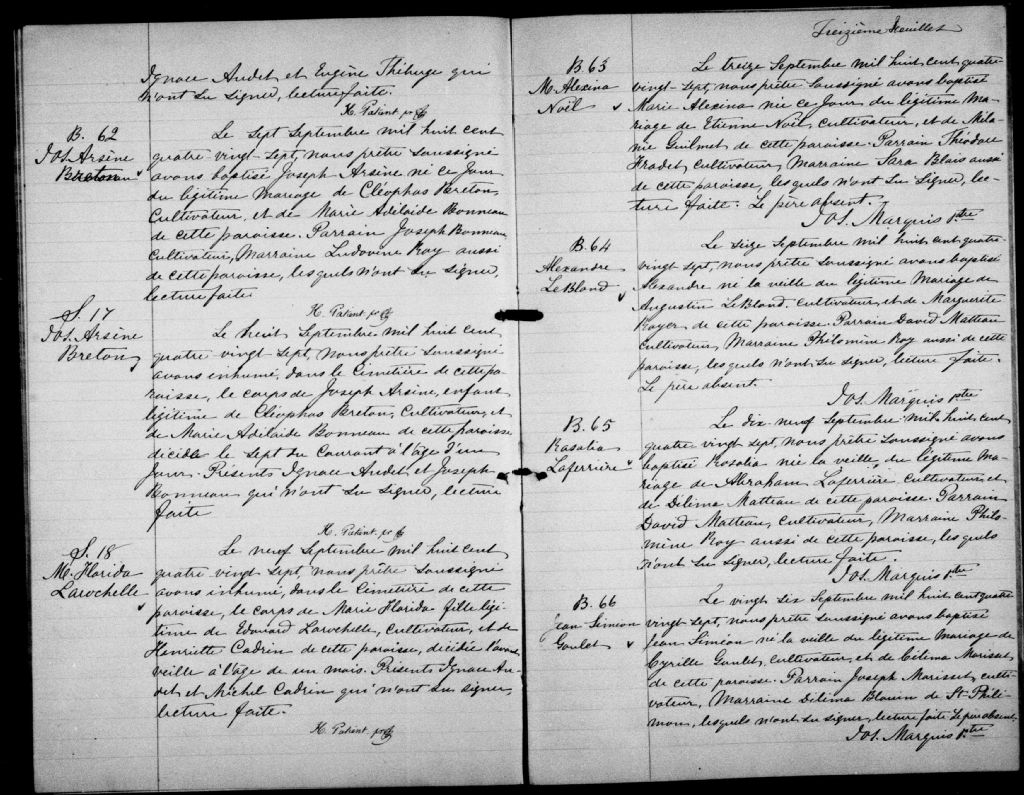 Ignace Audet et Eugène Théberge qui
n'ont su signer, lecture faite.
H. Patient
B. 62
Jos. Arsène
Breton
Le sept Septembre mil huit cent
quatre-vingt-sept, nous prêtre soussigné
avons baptisé Joseph Arsène né ce jour
du légitime mariage de Cléophas Breton
Cultivateur, et de Marie Adélaïde Bonneau
de cette paroisse. Parrain Joseph Bonneau
Cultivateur, Marraine Ludovine Roy aussi
de cette paroisse, lesquels n'ont su signer,
lecture faite
H. Patient
S. 17
Jos. Arsène
Breton
Le huit Septembre mil huit cent
quatre vingt-sept, nous prêtre soussigné
avons inhumé, dans le Cimetière de cette pa-
roisse, le corps de Joseph Arsène, enfant
légitime de Cléophas Breton, Cultivateur, et
de Marie Adélaïde Bonneau de cette paroisse
décédé le sept du courant à l'âge d'un
jour. Présents Ignace Audet, et Joseph
Bonneau qui n'ont su signer, lecture
faite
H. Patient
S. 18
M. Florida
Larochelle
Le neuf Septembre mil huit cent
quatre vingt sept, nous prêtre soussigné
avons inhumé, dans le Cimetière de cette
paroisse, le corps de Marie Florida fille légi-
time de Edouard Larochelle, Cultivateur, et de
Henriette Cadrin de cette paroisse, décédée l'avant
veille à l'âge de un mois. Présents Ignace Au-
det et Michel Cadrin qui n'ont su signer,
lecture faite.
H. Patient
Treizième Feuillet
B. 63
M. Alexina
Noël
Le treize Septembre mil huit cent quatre
vingt-sept, nous prêtre soussigné avons baptisé
Marie Alexina née ce jour du légitime Ma-
riage de Etienne Noël, cultivateur, et de Méla-
nie Guilmet de cette paroisse. Parrain Théodore
Fradet, cultivateur, Marraine Sara Blais aussi
de cette paroisse, lesquels n'ont su signer, lec-
ture faite. Le père absent.
Jos. Marquis ptre
B. 64
Alexandre
LeBlond
Le seize Septembre mil huit cent quatre-
vingt sept, nous prêtre soussigné avons baptisé
Alexandre né la veille du légitime Mariage de
Augustin LeBlond cultivateur, et de Marguerite
Royer de cette paroisse. Parrain David Matteau
cultivateur, Marraine Philomine Roy aussi de cette
paroisse, lesquels n'ont su signer, lecture faite.
Le père absent.
Jos. Marquis ptre
B. 65
Rosalia
Laferrière
Le dix-neuf Septembre mil huit cent
quatre vingt sept, nous prêtre soussigné avons
baptisé Rosalia née la veille, du légitime Ma-
riage de Abraham Laferrière, cultivateur, et
de Délima Matteau de cette paroisse. Parrain
David Matteau, cultivateur, Marraine Philo-
mine Roy aussi de cette paroisse, lesquels
n'ont su signer, lecture faite.
Jos. Marquis ptre
B. 66
Jean Siméon
Goulet
Le vingt six Septembre mil huit cent quatre
vingt-sept, nous prêtre soussigné avons baptisé
Jean Siméon né la veille du légitime mariage de
Cyrille Goulet, cultivateur, et de Célima Morisset,
de cette paroisse. Parrain Joseph Morisset, culti-
vateur, Marraine Délima Blouin de St-Phili-
mon, lesquels n'ont su signer, lecture faite. Le père absent.
Jos. Marquis ptre